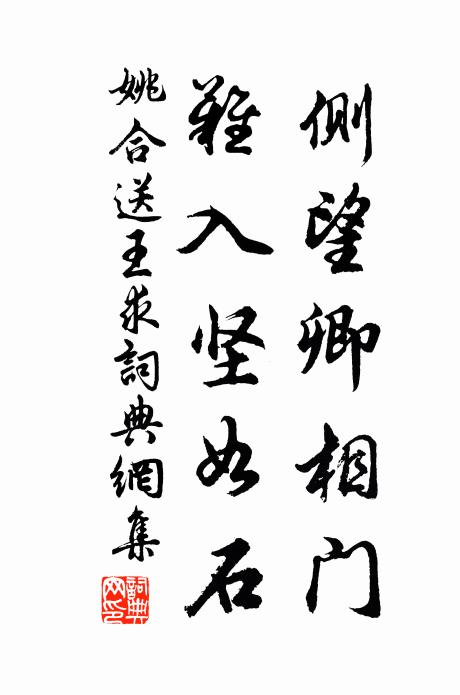 側望卿相门
難入坚如石
姚合送王求詞典網集
詞典网印